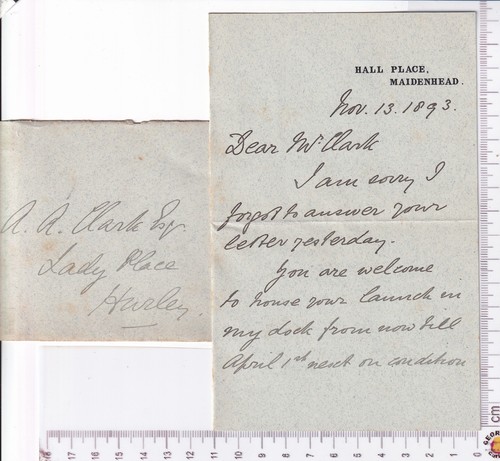 HALL PLACE,
MAIDENHEAD.
Nov. 13. 1893.
Dear Mr Clark
I am sorry I
forgot to answer your
letter yesterday.
You are welcome
to house your launch in
my dock from now till
April 1st next on condition
A. A. Clark Esqr
Lady Place
Hurley.
18 17 16 15 14 13 12 11 10 9 8 7 6 5 4 3 2 1 0
cm